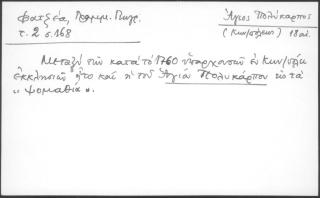 Φατζέα, Γραμμ. Γεωγρ.
τ. 2 σ. 168
Ἅγιος Πολύκαρπος
(Κων/πόλεως) 18 αἰ.
Μεταξὺ τῶν κατὰ τὸ 1760 ὑπαρχουσῶν ἐν Κων/πόλει
ἐκκλησιῶν ἦτο καὶ ἡ τοῦ Ἁγίου Πολυκάρπου εἰς τὰ
"Ψομαθιά".